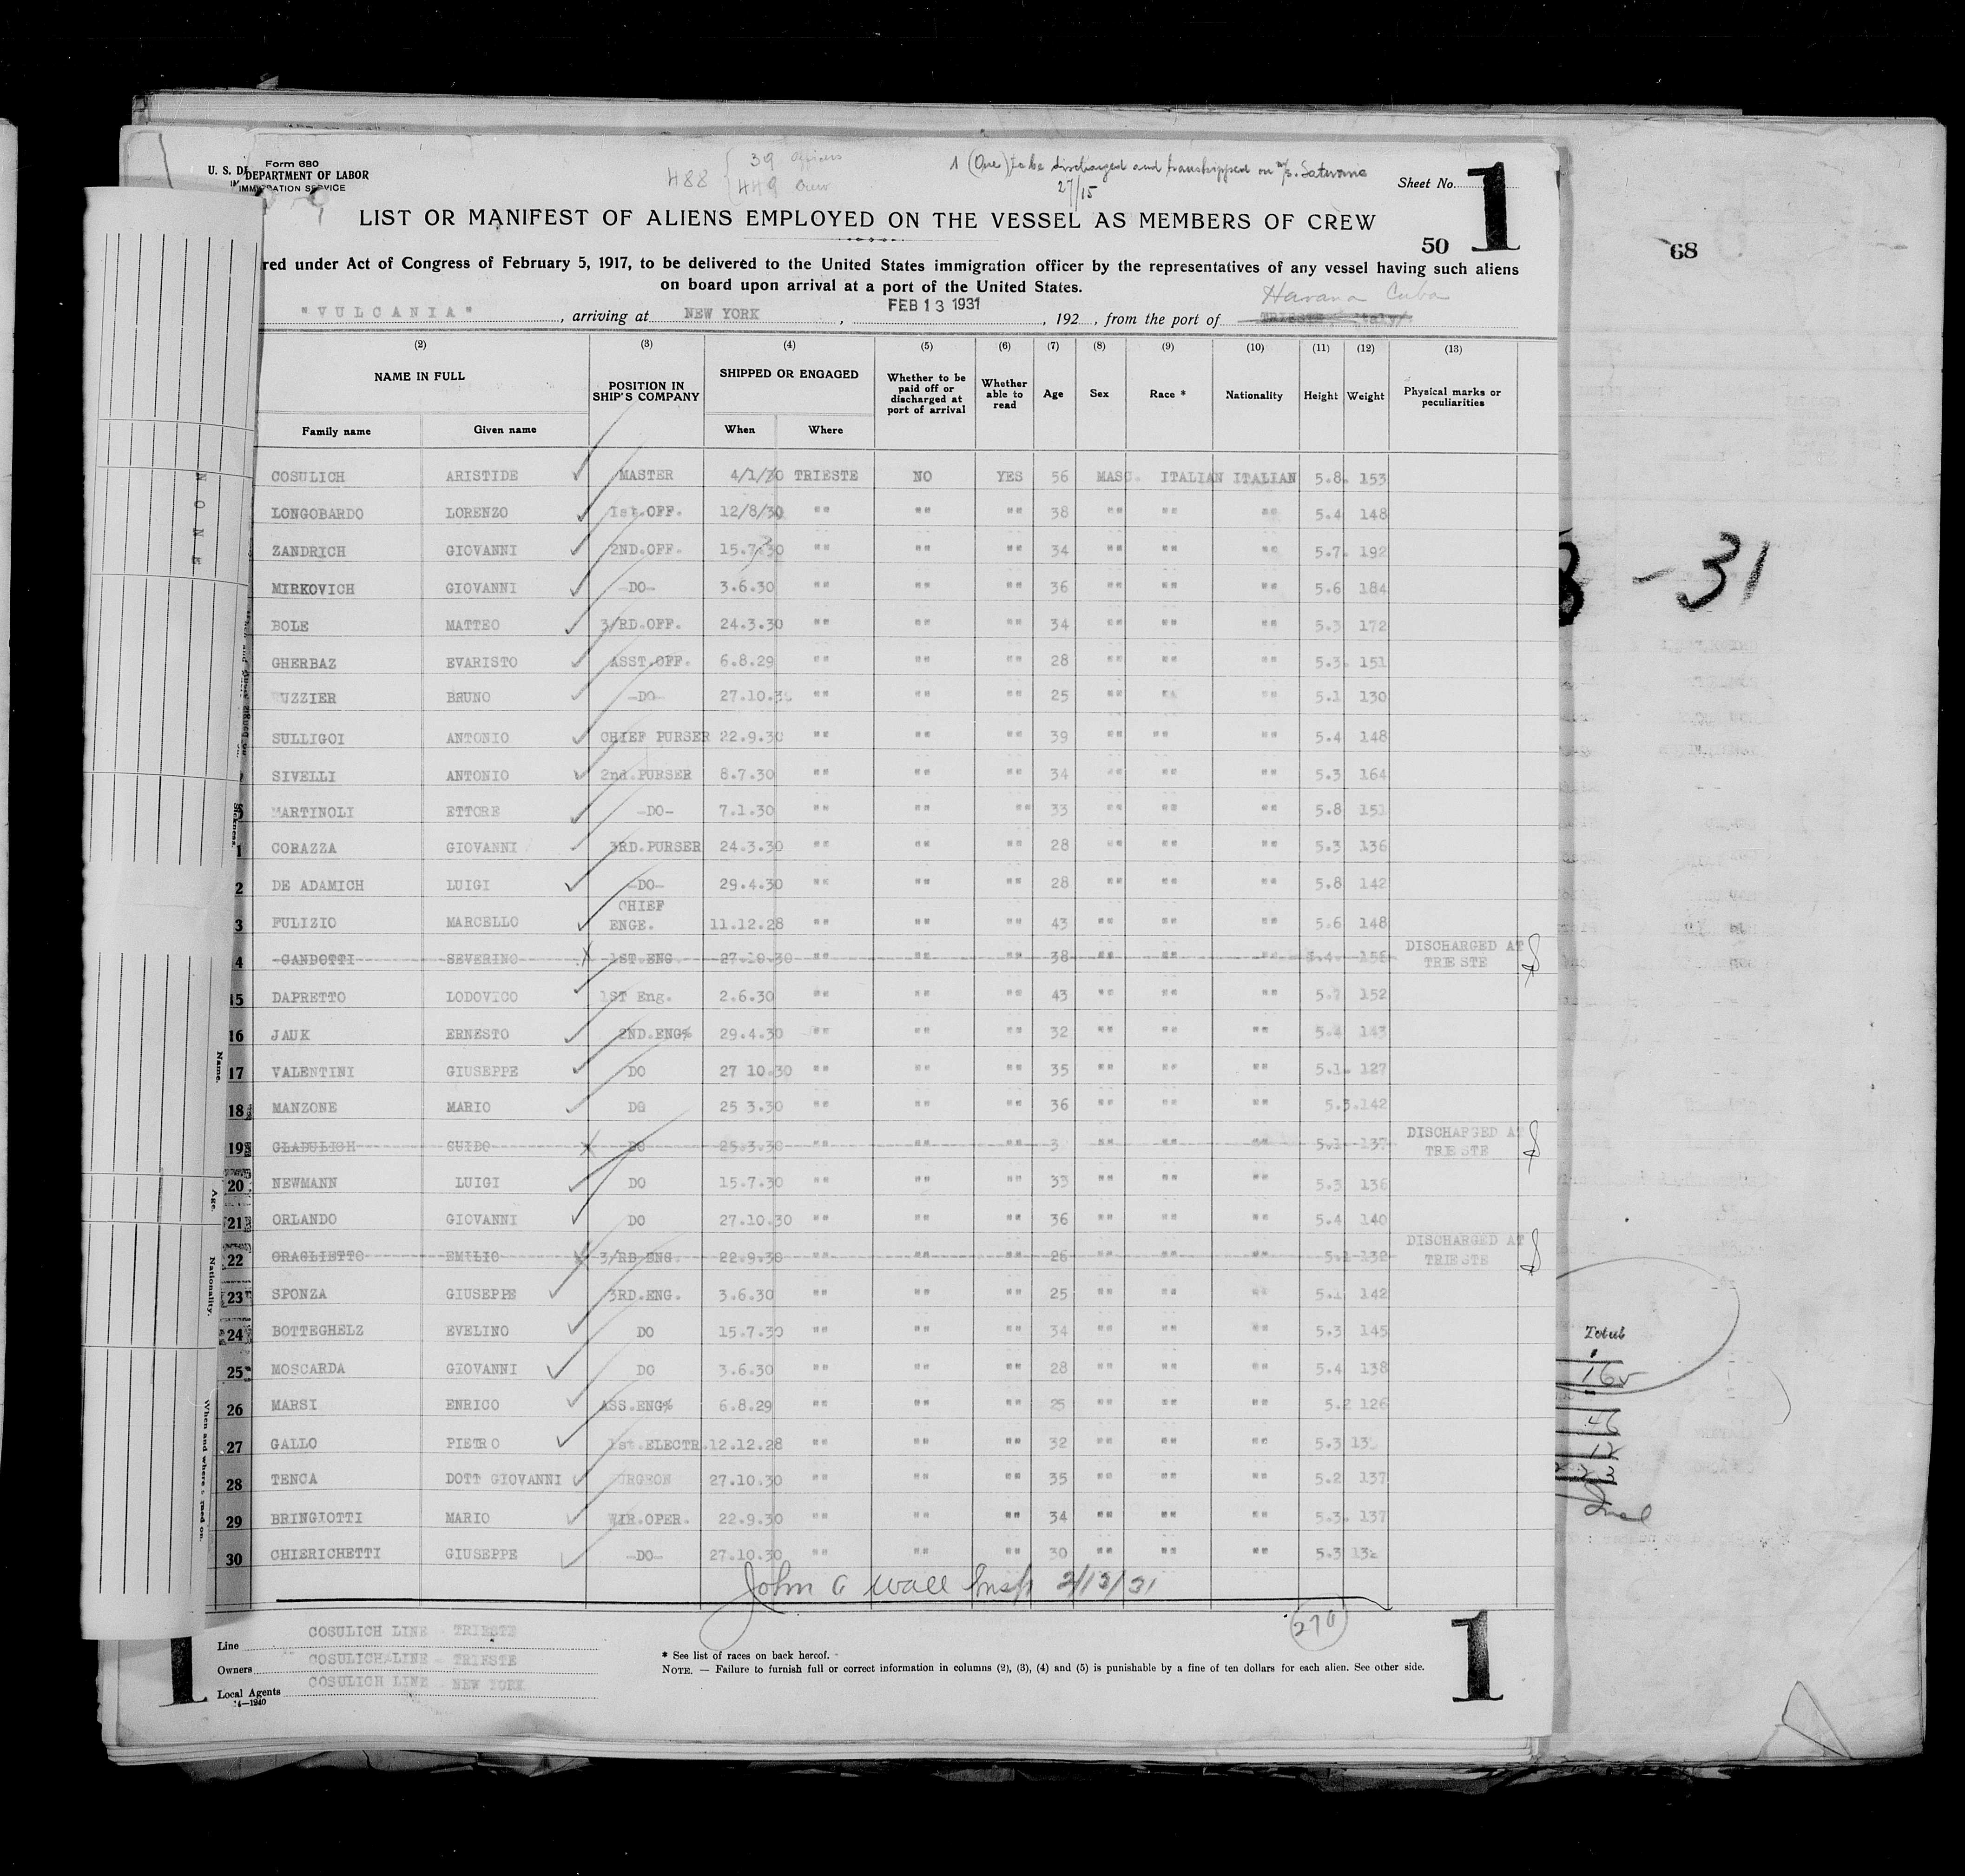 Form 680
U. S. DEPARTMENT OF LABOR
IMMIGRATION SERVICE
488 { 39 Officers
449 Crew
1 (One) to be discharged and transhipped on m/s. Saturnia
27/15
Sheet No. 1
LIST OR MANIFEST OF ALIENS EMPLOYED ON THE VESSEL AS MEMBERS OF CREW
50
68
red under Act of Congress of February 5, 1917, to be delivered to the United States immigration officer by the representatives of any vessel having such aliens
on board upon arrival at a port of the United States.
Havana Cuba
"VULCANIA", arriving at NEW YORK, FEB 13 1931, 192 , from the port of TRIESTE, Italy.
(2) (3) (4) (5) (6) (7) (8) (9) (10) (11) (12) (13)
NAME IN FULL POSITION IN SHIP'S COMPANY SHIPPED OR ENGAGED Whether to be paid off or discharged at port of arrival Whether able to read Age Sex Race * Nationality Height Weight Physical marks or peculiarities
Family name Given name When Where
COSULICH ARISTIDE MASTER 4/1/30 TRIESTE NO YES 56 MASC. ITALIAN ITALIAN 5.8. 153
LONGOBARDO LORENZO 1st.OFF. 12/8/30 "" "" "" 38 "" "" "" 5.4 148
ZANDRICH GIOVANNI 2ND.OFF. 15.7.30 "" "" "" 34 "" "" "" 5.7. 192
MIRKOVICH GIOVANNI -DO- 3.6.30 "" "" "" 36 "" "" "" 5.6 184
BOLE MATTEO 3/RD.OFF. 24.3.30 "" "" "" 34 "" "" "" 5.3 172
GHERBAZ EVARISTO ASST.OFF. 6.8.29 "" "" "" 28 "" "" "" 5.3. 151
UZZIER BRUNO -DO- 27.10.30 "" "" "" 25 "" "" "" 5.1 130
SULLIGOI ANTONIO CHIEF PURSER 22.9.30 "" "" "" 39 "" "" "" 5.4 148
SIVELLI ANTONIO 2nd.PURSER 8.7.30 "" "" "" 34 "" "" "" 5.3 164
MARTINOLI ETTORE -DO- 7.1.30 "" "" "" 33 "" "" "" 5.8 151
1 CORAZZA GIOVANNI 3RD.PURSER 24.3.30 "" "" "" 28 "" "" "" 5.3 136
2 DE ADAMICH LUIGI -DO- 29.4.30 "" "" "" 28 "" "" "" 5.8 142
3 FULIZIO MARCELLO CHIEF ENGE. 11.12.28 "" "" "" 43 "" "" "" 5.6 148
4 GANDOTTI SEVERINO 1ST.ENG. 27.10.30 "" "" "" 38 "" "" "" 5.4. 158 DISCHARGED AT TRIESTE
15 DAPRETTO LODOVICO 1ST Eng. 2.6.30 "" "" "" 43 "" "" "" 5.7 152
16 JAUK ERNESTO 2ND.ENG% 29.4.30 "" "" "" 32 "" "" "" 5.4 143
17 VALENTINI GIUSEPPE DO 27 10.30 "" "" "" 35 "" "" "" 5.1. 127
18 MANZONE MARIO DO 25 3.30 "" "" "" 36 "" "" "" 5.3.142
19 GLADULICH GUIDO DO 25.3.30 "" "" "" 3 "" "" "" 5.1 137 DISCHARGED AT TRIESTE
20 NEWMANN LUIGI DO 15.7.30 "" "" "" 33 "" "" "" 5.3 136
21 ORLANDO GIOVANNI DO 27.10.30 "" "" "" 36 "" "" "" 5.4 140
22 GRAGLIETTO EMILIO 3/RD ENG. 22.9.30 "" "" "" 26 "" "" "" 5.1 132 DISCHARGED AT TRIESTE
23 SPONZA GIUSEPPE 3RD.ENG. 3.6.30 "" "" "" 25 "" "" "" 5.1 142
24 BOTTEGHELZ EVELINO DO 15.7.30 "" "" "" 34 "" "" "" 5.3 145
25 MOSCARDA GIOVANNI DO 3.6.30 "" "" "" 28 "" "" "" 5.4 138
26 MARSI ENRICO ASS.ENG% 6.8.29 "" "" "" 25 "" "" "" 5.2 126
27 GALLO PIETRO 1st.ELECTR. 12.12.28 "" "" "" 32 "" "" "" 5.3 13
28 TENCA DOTT GIOVANNI URGEON 27.10.30 "" "" "" 35 "" "" "" 5.2 137
29 BRINGIOTTI MARIO WIR.OPER. 22.9.30 "" "" "" 34 "" "" "" 5.3. 137
30 CHIERICHETTI GIUSEPPE -DO- 27.10.30 "" "" "" 30 "" "" "" 5.3 132
John A Wall Insp 2/13/31
270
Line COSULICH LINE - TRIESTE
Owners COSULICH LINE - TRIESTE
Local Agents COSULICH LINE NEW YORK
14-1240
* See list of races on back hereof.
NOTE. — Failure to furnish full or correct information in columns (2), (3), (4) and (5) is punishable by a fine of ten dollars for each alien. See other side.
1 1
NONE
Sickness.
Name.
Age.
Nationality.
- 31
Total
46
12